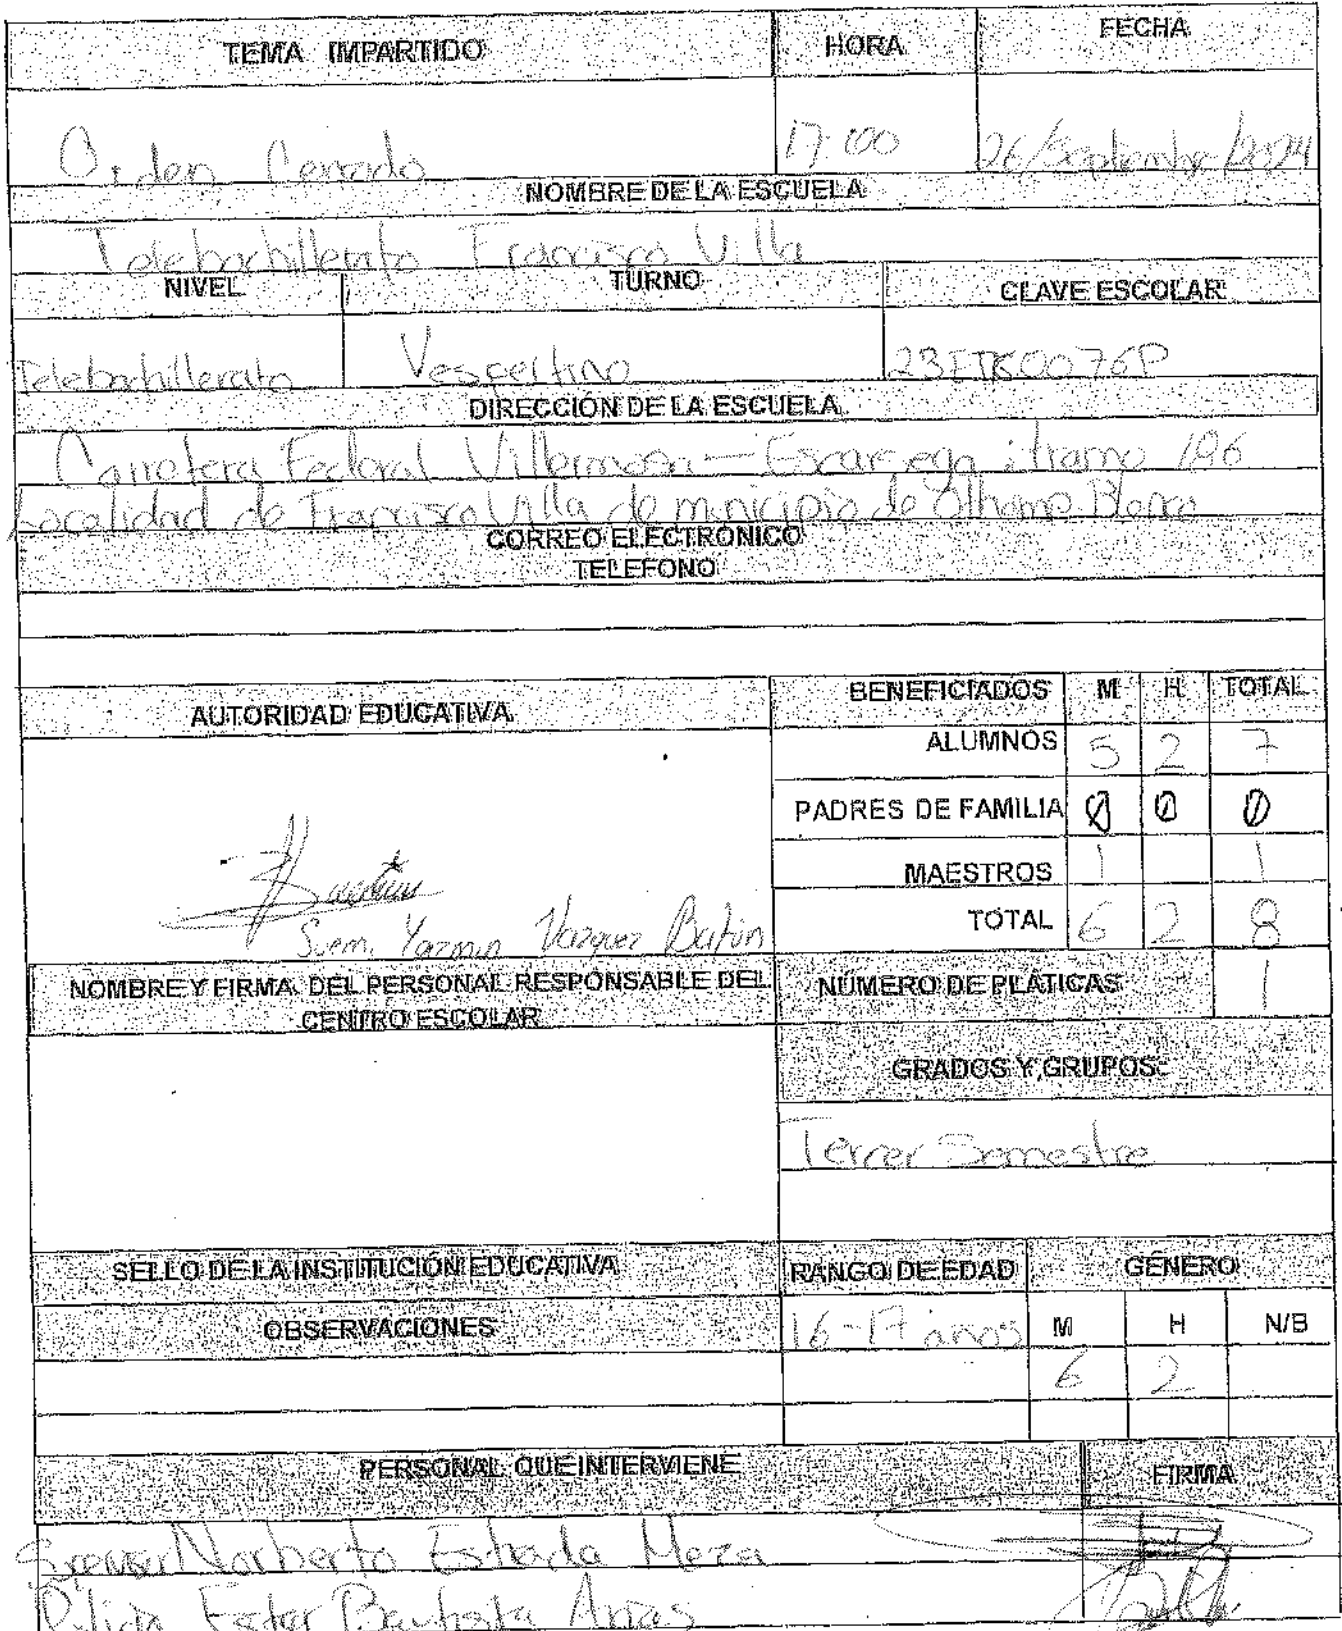 TEMA IMPARTIDO HORA FECHA
Orden Cerrado 17:00 26/Septiembre/2024
NOMBRE DE LA ESCUELA
Telebachillerato Francisco Villa
NIVEL TURNO CLAVE ESCOLAR
Telebachillerato Vespertino 23ETK0076P
DIRECCIÓN DE LA ESCUELA
Carretera Federal Villermosa - Escarcega tramo 186
Localidad de Francisco Villa de municipio de Othomp Blanco
CORREO ELECTRÓNICO
TELEFONO
AUTORIDAD EDUCATIVA BENEFICIADOS M H TOTAL
ALUMNOS 5 2 7
PADRES DE FAMILIA 0 0 0
MAESTROS 1 1
TOTAL 6 2 8
Yazmin Vazquez Batún
NOMBRE Y FIRMA DEL PERSONAL RESPONSABLE DEL
CENTRO ESCOLAR
NÚMERO DE PLÁTICAS 1
GRADOS Y GRUPOS:
Tercer Semestre
SELLO DE LA INSTITUCIÓN EDUCATIVA RANGO DE EDAD GÉNERO
OBSERVACIONES 16-17 años M H N/B
6 2
PERSONAL QUE INTERVIENE FIRMA
Norberto Estrada Meza
Policia Ester Bautista Arias